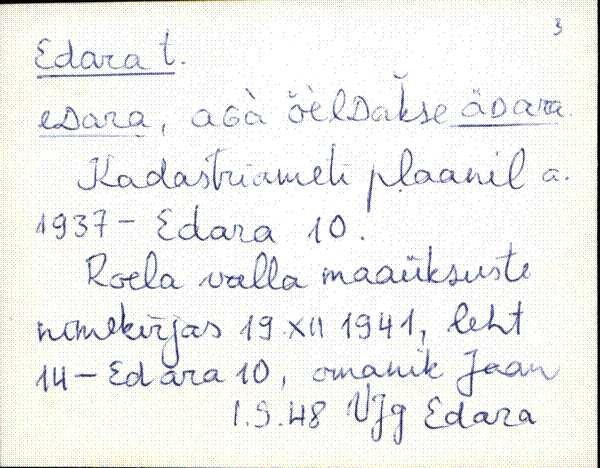 3
Edara t.
eDara, aGà ö̀elDak̆se äDara.
Kadastriameti plaanil a.
1937 – Edara 10.
Roela valla maaüksuste
nimekirjas 19. XII 1941, leht
14 – Edara 10, omanik Jaan
1.S.48 VJg Edara